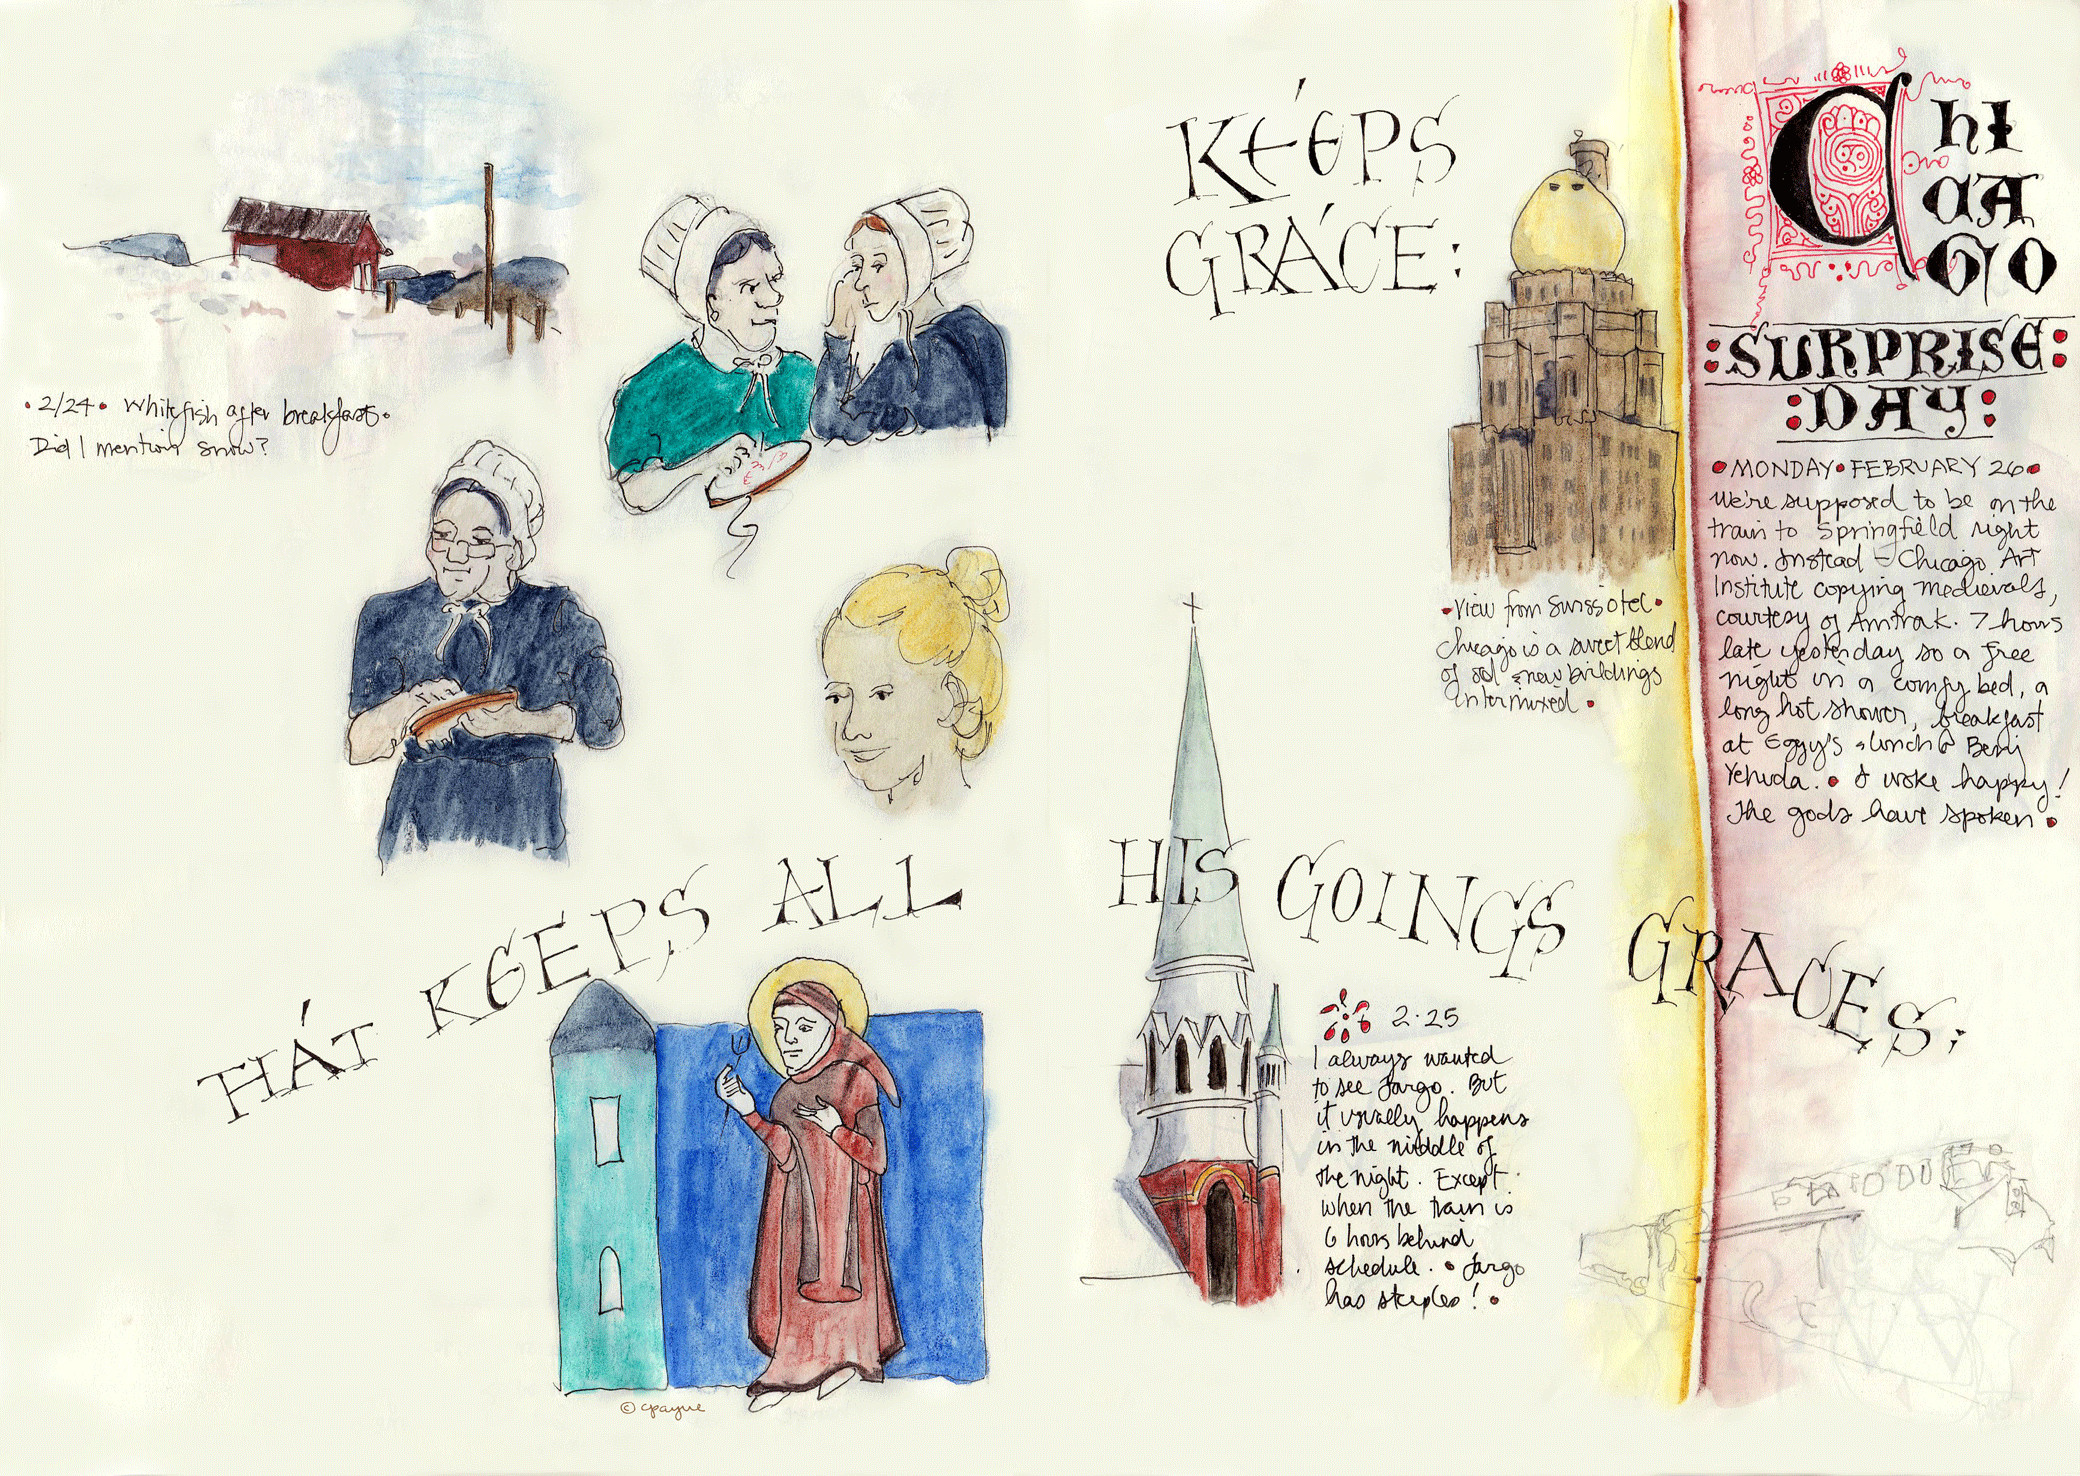 • 2/24 • Whitefish after breakfast •
Did I mention snow?
KÉEPS
GRÁCE:
HÁT KEEPS ALL HIS GOINGS GRACES;
© cpayne
• View from Swissotel •
Chicago is a sweet blend
of old & new buildings
intermixed •
2.25
I always wanted
to see Fargo. But
it usually happens
in the middle of
the night. Except
when the train is
6 hours behind
schedule. • Fargo
has steeples! •
CHI
CA
GO
:SURPRISE:
:DAY:
• MONDAY • FEBRUARY 26 •
We're supposed to be on the
train to Springfield right
now. Instead – Chicago Art
Institute copying medievals,
courtesy of Amtrak. 7 hours
late yesterday so a free
night in a comfy bed, a
long hot shower, breakfast
at Eggy's & lunch @ Benj
Yehuda. • I woke happy!
The gods have spoken •